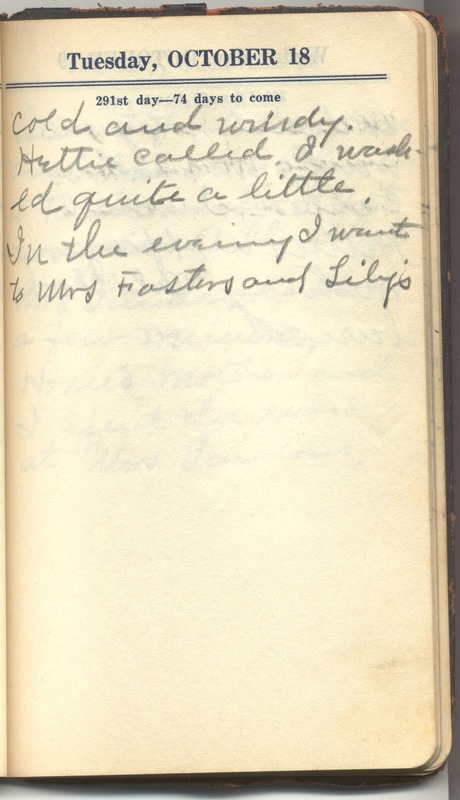 Tuesday, OCTOBER 18
291st day—74 days to come
cold and windy.
Hettie called. I wash-
ed quite a little.
In the evening I want
to Mrs Fosters and Lily's